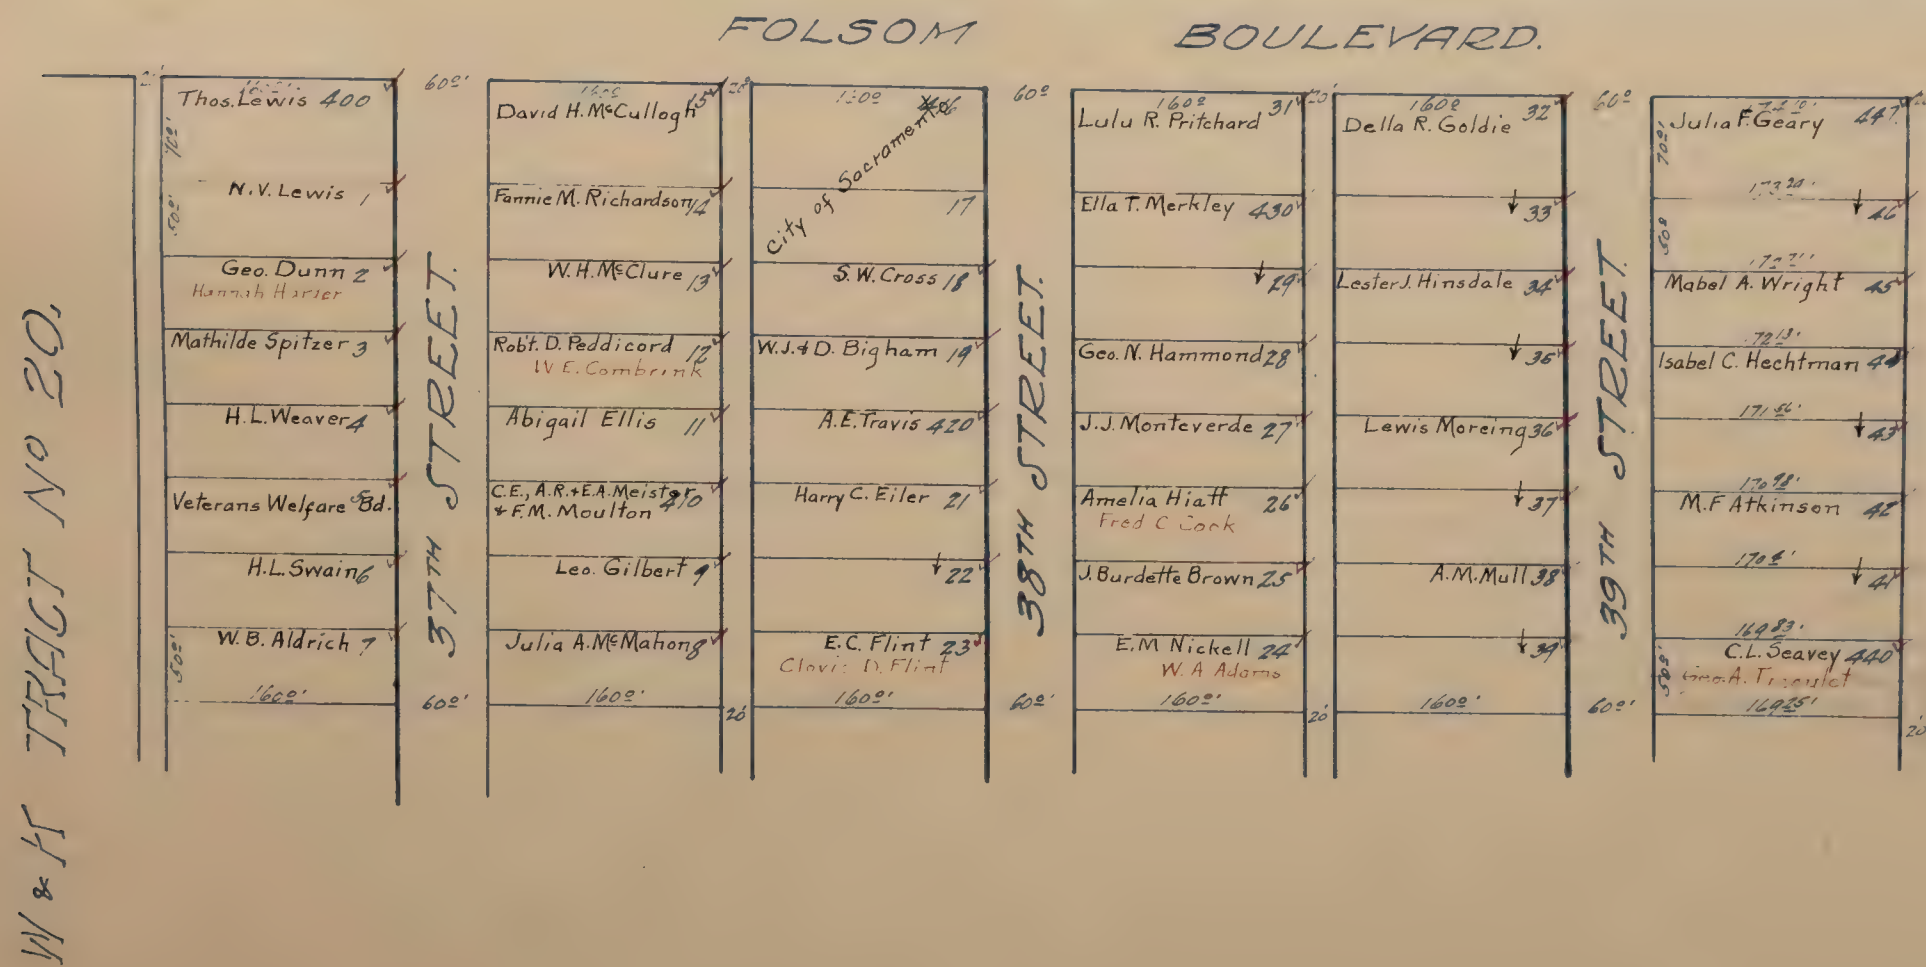 FOLSOM BOULEVARD.
W & K TRACT No 20.
Thos. Lewis 400
70º'
N.V. Lewis 1
50º'
Geo. Dunn 2
Hannah Harter
Mathilde Spitzer 3
H.L. Weaver 4
Veterans Welfare Bd. 5
H.L. Swain 6
W. B. Aldrich 7
50º'
160º'
60º'
37TH STREET.
60º'
160º
David H. McCullogh 15
Fannie M. Richardson 14
W.H. McClure 13
Robt. D. Peddicord 12
W E. Combrink
Abigail Ellis 11
C.E., A.R. + E.A. Meister
& F.M. Moulton 410
Leo. Gilbert 9
Julia A. McMahon 8
160º'
20º
20'
City of Sacramento
17
S.W. Cross 18
W.J. & D. Bigham 19
A.E. Travis 420
Harry C. Eiler 21
↓ 22
E.C. Flint 23
Clovis D. Flint
160º'
60º
38TH STREET.
60º'
160º
Lulu R. Pritchard 31
Ella T. Merkley 430
↓ 29
Geo. N. Hammond 28
J.J. Monteverde 27
Amelia Hiatt 26
Fred C Cook
J. Burdette Brown 25
E.M Nickell 24
W. A Adams
160º'
20'
20'
160º
Della R. Goldie 32
↓ 33
Lester J. Hinsdale 34
↓ 35
Lewis Moreing 36
↓ 37
A.M. Mull 38
↓ 39
160º'
60º
39TH STREET.
60º'
Julia F. Geary 447
70º'
↓ 46
50º
Mabel A. Wright 45
Isabel C. Hechtman 44
171 56'
↓ 43
170 98'
M.F Atkinson 42
↓ 41
169 83'
C.L. Seavey 440
50º'
169 25'
20'